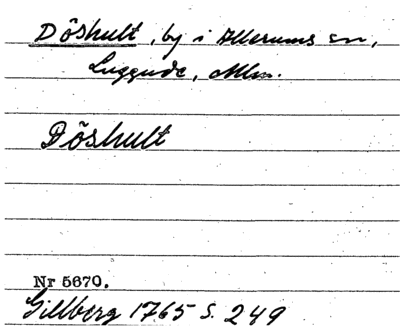 Döshult, by i Allerums sn,
Luggude, Mlm.
Döshult
Nr 5670.
Gillberg 1765 s. 249